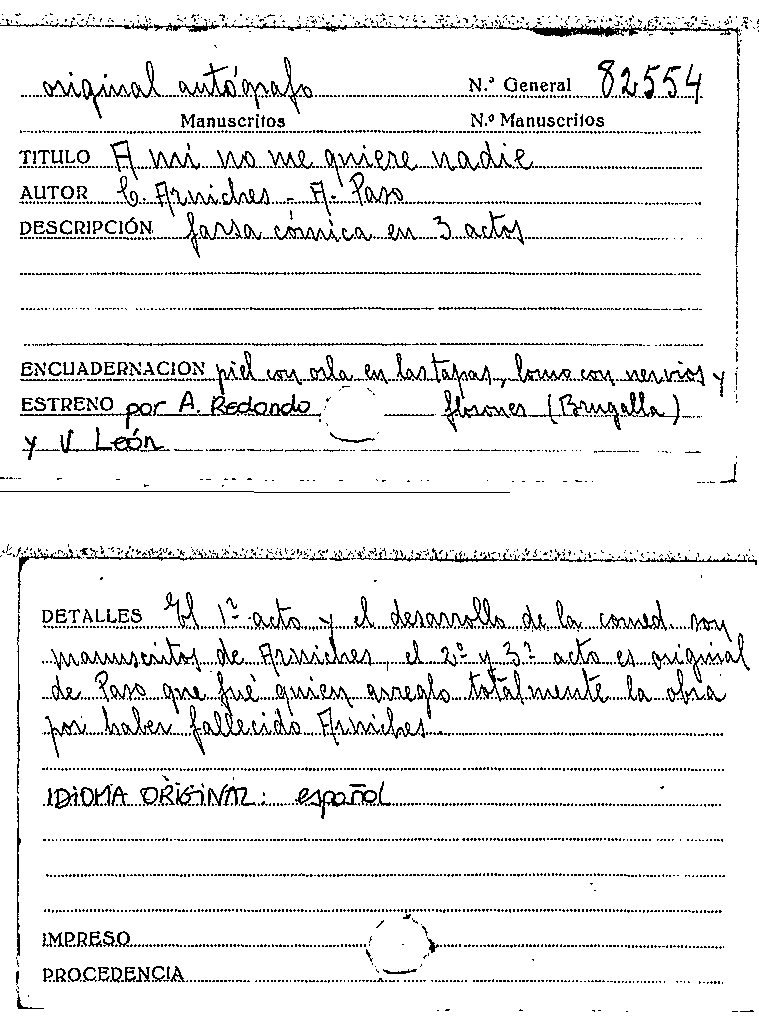 original autógrafo N.º General 82554
Manuscritos N.º Manuscritos
TITULO A mi no me quiere nadie
AUTOR C. Arniches - A. Paso
DESCRIPCIÓN farsa cómica en 3 actos
ENCUADERNACION piel con orla en las tapas, lomo con nervios y
ESTRENO por A. Redondo florones (Brugalla)
y V. León
DETALLES El 1º acto y el desarrollo de la comed. son
manuscritos de Arniches, el 2º y 3º acto es original
de Paso que fué quien arreglo totalmente la obra
por haber fallecido Arniches.
IDIOMA ORIGINAL: español
IMPRESO
PROCEDENCIA